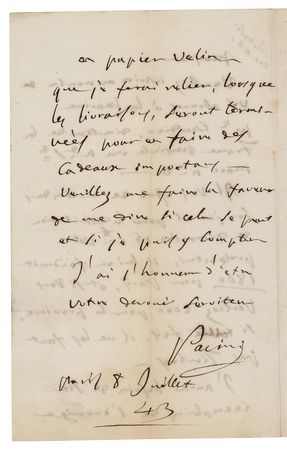 en papier velin
que je ferai relier, lorsque
les livraisons, seront termi-
nées pour en faire des
Cadeaux importans —
Veuillez me faire la faveur
de me dire si cela se peut
et si je puis y compter
J'ai l'honneur d'etre
votre devoué serviteur
Pacini
Paris 8 Juillet
43